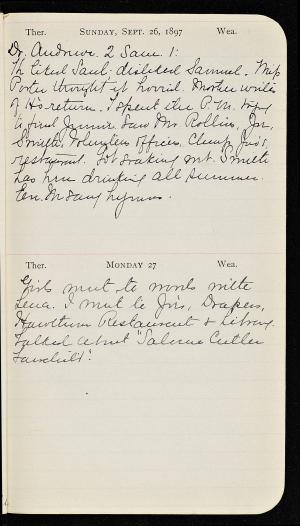 Ther. SUNDAY, SEPT. 26, 1897 Wea.
Dr. Andrews. 2 Sam 1:
He liked Saul; disliked Samuel. Miss
Porter thought it horrid. Mother writes
of H's return. I spent the P.M. trying
to find Jimmie. Saw Mrs. Rollins,
Smith, Volunteer officers, Cheap
restaurant. Got soaking wet. Smith
has been drinking all summer.
Eve. M sang hymns.
Ther. MONDAY 27 Wea.
Girls went to woods with
Lena. I went to Jn's, Drapers,
Restaurant & Library.
Talked about "Salome Cutler
Fairchild".